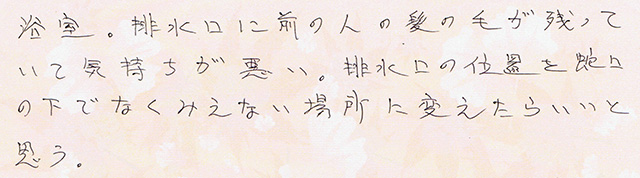 浴室。排水口に前の人の髪の毛が残って
いて気持ちが悪い。排水口の位置を蛇口
の下でなくみえない場所に変えたらいいと
思う。